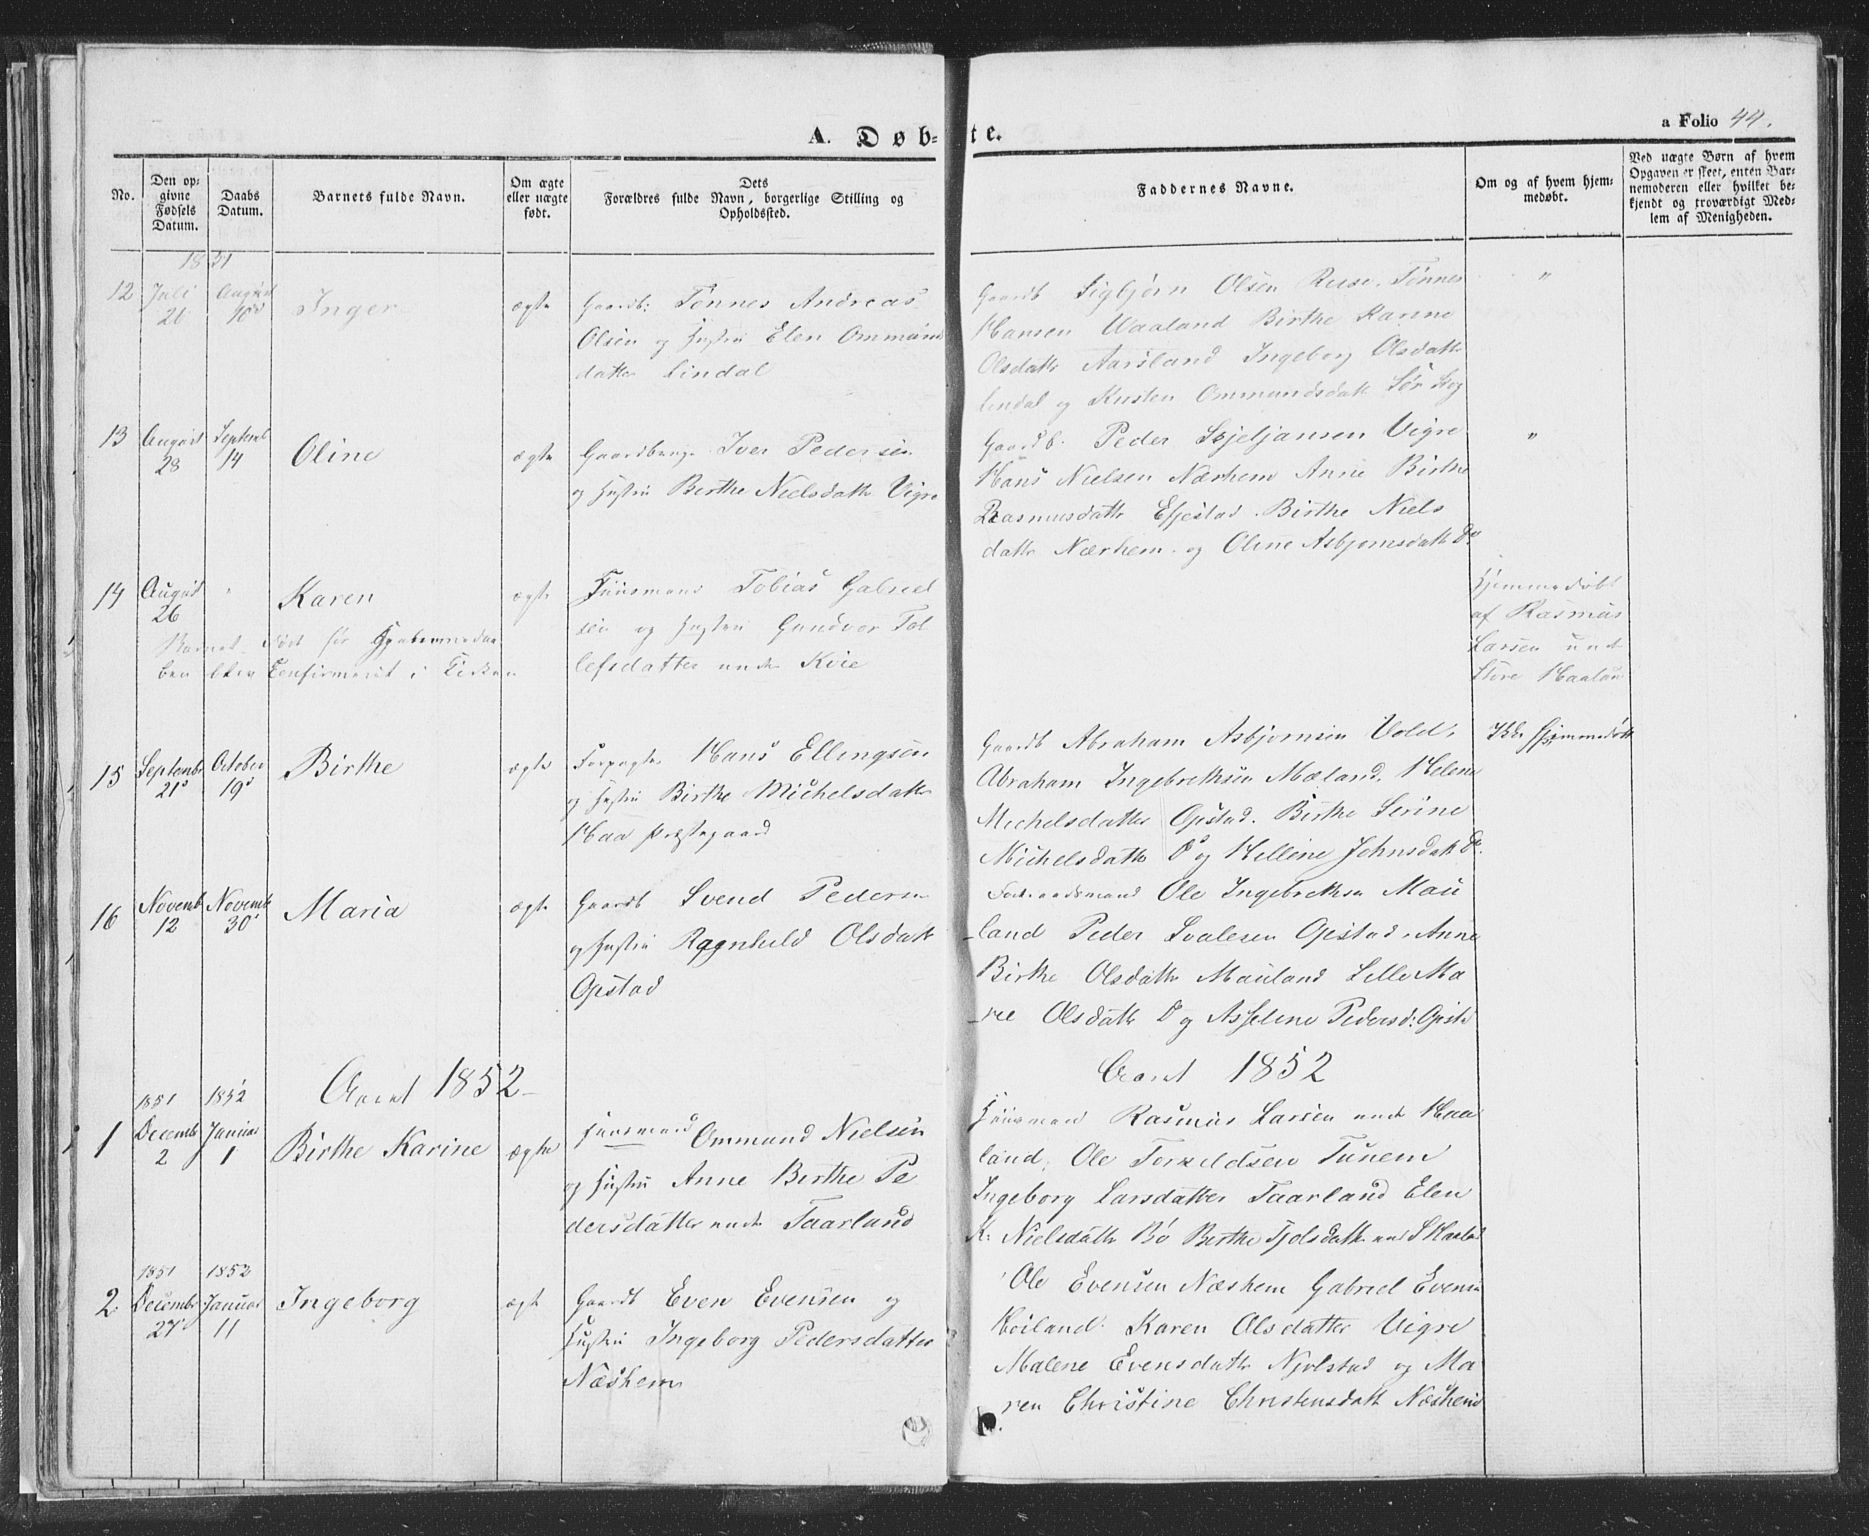 A. Døb-
te.
a Folio 44.
No.
Den op-
givne
Fødsels
Datum.
Daabs
Datum.
Barnets fulde Navn.
Om ægte
eller uægte
født.
Dets
Forældres fulde Navn, borgerlige Stilling og
Opholdssted.
Faddernes Navne.
Om og af hvem hjem-
medøbt.
Ved uægte Børn af hvem
Opgaven er skeet, enten Bar-
nemoderen eller hvilket be-
kjendt og troværdigt Med-
lem af Menigheden.
1851
12 Juli 26 August 10de Inger ægte
Gaardb: Tönnes Andreas
Olsen og Hustru Elen Ommund
datter Lindal
Gaardb Sigbjörn Olsen Ruse. Tönnes
Hansen Waaland Birthe Karine
Olsdattr Aarsland Ingeborg Olsdattr
Lindal og Kirsten Ommundsdatt
"
13 August 28 Septembr 14 Oline ægte
Iver Pedersen
og Hustru Birthe Nielsdattr Vigre
Gaardb. Peder Vigre
Hans Nielsen Nærhem Anne Birthe
Rasmusdattr Birthe Niels
dattr Nærhem og Oline Asbjornsdatt Do
"
14 August 26 " Karen ægte
Huusmand Tobias Gabriel
sen og Hustru Gundvor Tol
lefsdatter unde Kvie
Barnet död før
ben blev Confirmeret i Kirken
Hjemmedöbt
af Rasmus
Larsen und
Store Haalan
15 Septembr 21de October 19de Birthe ægte
Forpagter Hans Ellingsen
og Hustru Birthe Michelsdattr
Haa Præstegaard
Gaardb Abraham Asbjornsen Vold.
Abraham Ingebrethsen Mæland. Helene
Michelsdatter Opstad. Birthe Serine
Michelsdattr Do og Helline Johnsdatt Do.
Ikke Hjemmedöbt
16 Novemb 12 Novemb 30 Maria ægte
Gaardb Svend Pedersen
og Hustru Ragnhild Olsdatt
Opstad
Ole Ingebrethsen Mau
land Peder Svalesen Opstad. Anne
Birthe Olsdattr Mauland Lille Ma
rie Olsdattr Do og Asseline Pedersd: Opstd
Aaret 1852
Aaret 1852
1 1851 Decembr 2 1852 Januar 1 Birthe Karine ægte
Huusmand Ommund Nielsen
og Hustru Anne Birthe Pe
dersdatter unde Taarland
Huusmand Rasmus Larsen unde Haa
land, Ole Torkeldsen Tunem
Ingeborg Larsdatter Taarland Elen
K. Nielsdattr Bö Berthe
2 1851 Decembr 27 1852 Januar 11 Ingeborg ægte
Gaardb Even Evensen og
Hustru Ingeborg Pedersdatter
Næshem
Ole Evensen Næshem Gabriel Evensen
Höiland. Karen Olsdatter Vigre
Malene Evensdattr Njolstad og Ma
ren Christine Christensdatt Næshem